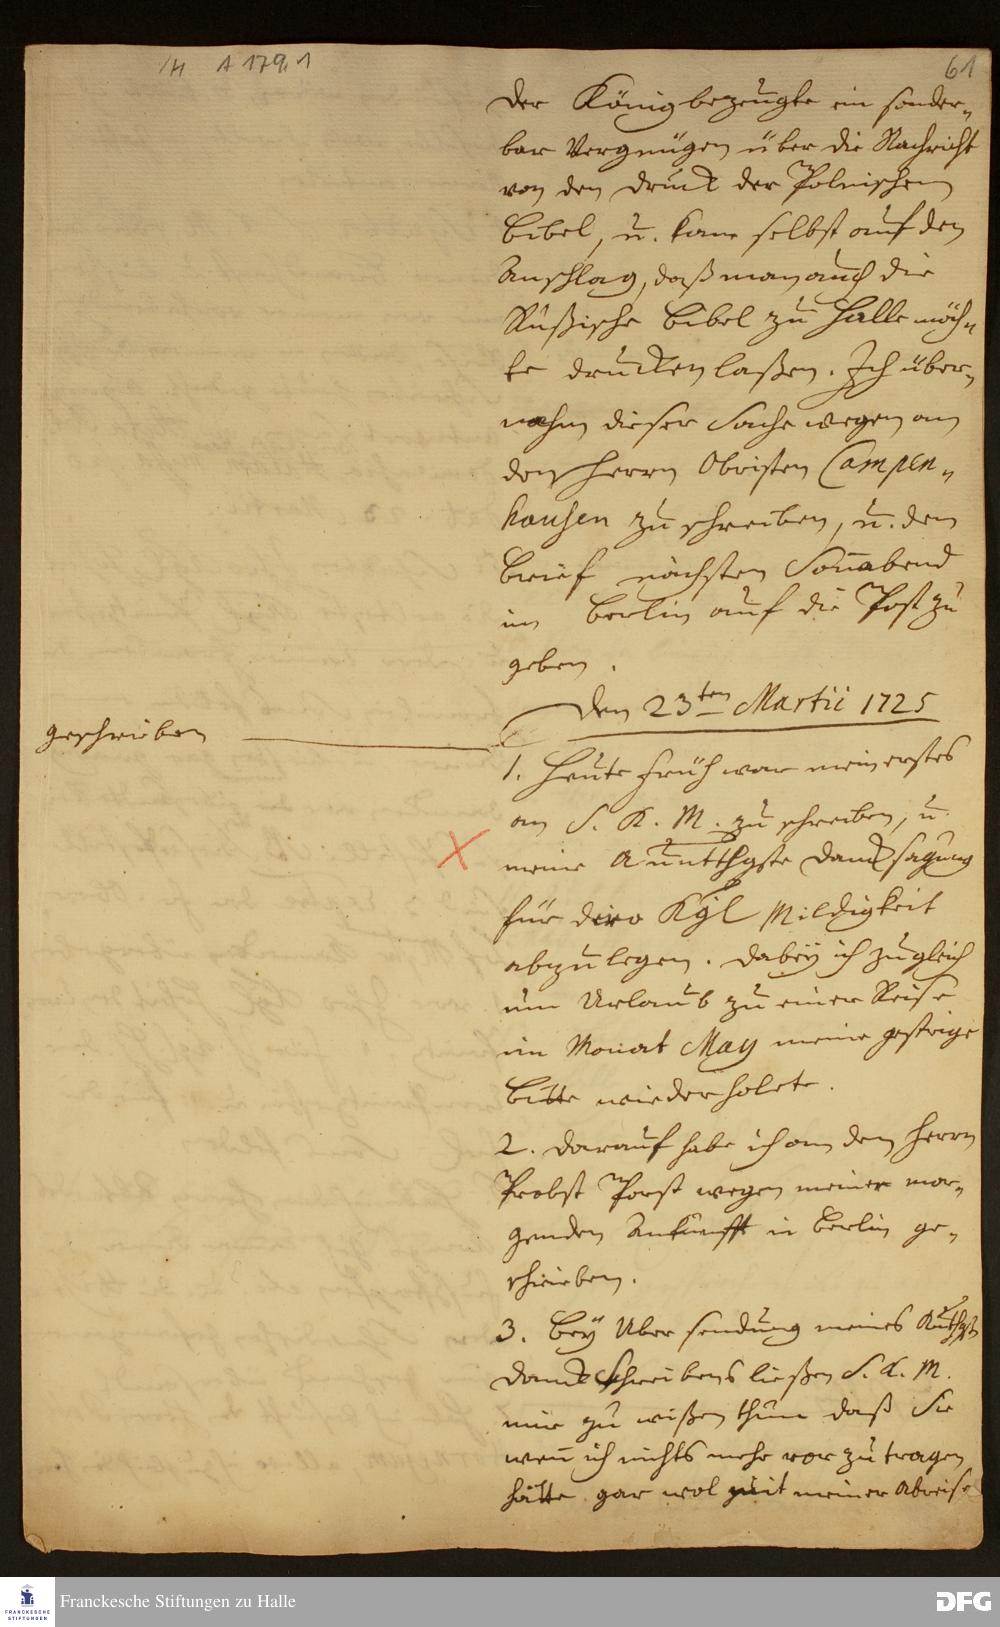 /H A 179,1
61
der König bezeugte ein sonder-
bar Vergnügen über die Nachricht
von den druck der Polnischen
Bibel, u. kam selbst auf den
Anschlag, daß man auch die
Rußische Bibel zu Halle möch-
te drucken laßen. Ich über-
nahm dieser Sache wegen an
den Herrn Obristen Campen-
hausen zu schreiben, u. den
brief nächsten Sonabend
in Berlin auf die Post zu
geben.
den 23ten Martii 1725
geschrieben
1. Heute früh war mein erstes
an S. K. M. zu schreiben, u.
meine Auntthgste dancksagung
für dero Kgl Mildigkeit
abzulegen. dabey ich zugleich
um Urlaub zu einer Reise
im Monat May meine gestrige
bitte wiederholete.
2. darauf habe ich an den Herrn
Probst Porst wegen meiner mor-
genden Ankunfft in Berlin ge-
schrieben.
3. bey Uber sendung meines
danck Schreibens ließen S. K. M.
mir zu wißen thun daß Sie
wen ich nichts mehr vor zu tragen
hätte gar wol mit meiner Abreise
Franckesche Stiftungen zu Halle
FRANCKESCHE
STIFTUNGEN
DFG